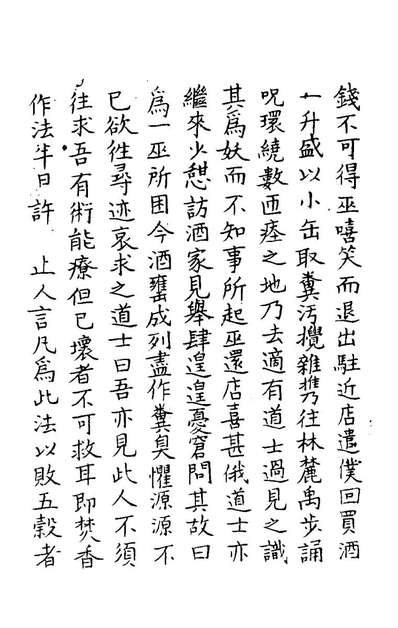 錢不可得巫嘻笑而退出駐近店遣僕回買酒
一升盛以小缶取糞汚攪雜攜往林麓禹步誦
呪環繞數匝瘞之地乃去適有道士過見之識
其為妖而不知事所起巫還店喜甚俄道士亦
繼來少憇訪酒家見舉肆遑遑憂窘問其故曰
為一巫所困今酒甕成列盡作糞臭懼源源不
已欲徃尋迹哀求之道士曰吾亦見此人不須
往求吾有術能療但已壞者不可救耳即焚香
作法半日許　止人言凡為此法以敗五穀者